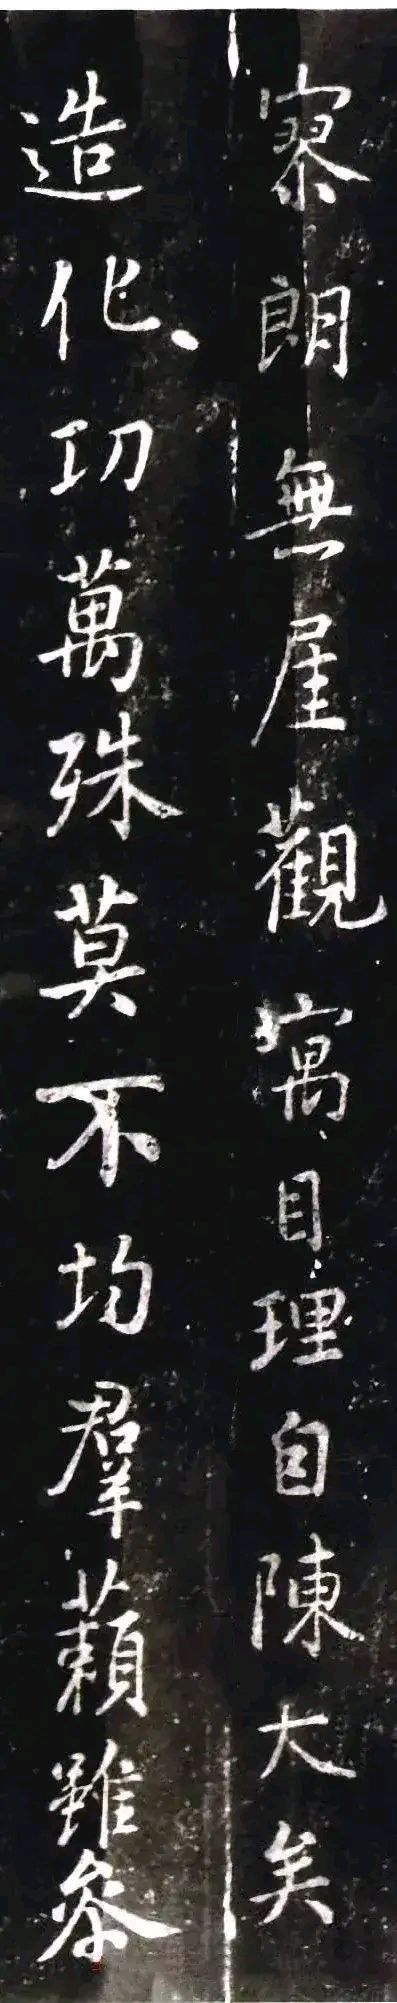 寥朗無厓觀寓目理自陳大矣
造化功萬殊莫不均群藾雖参